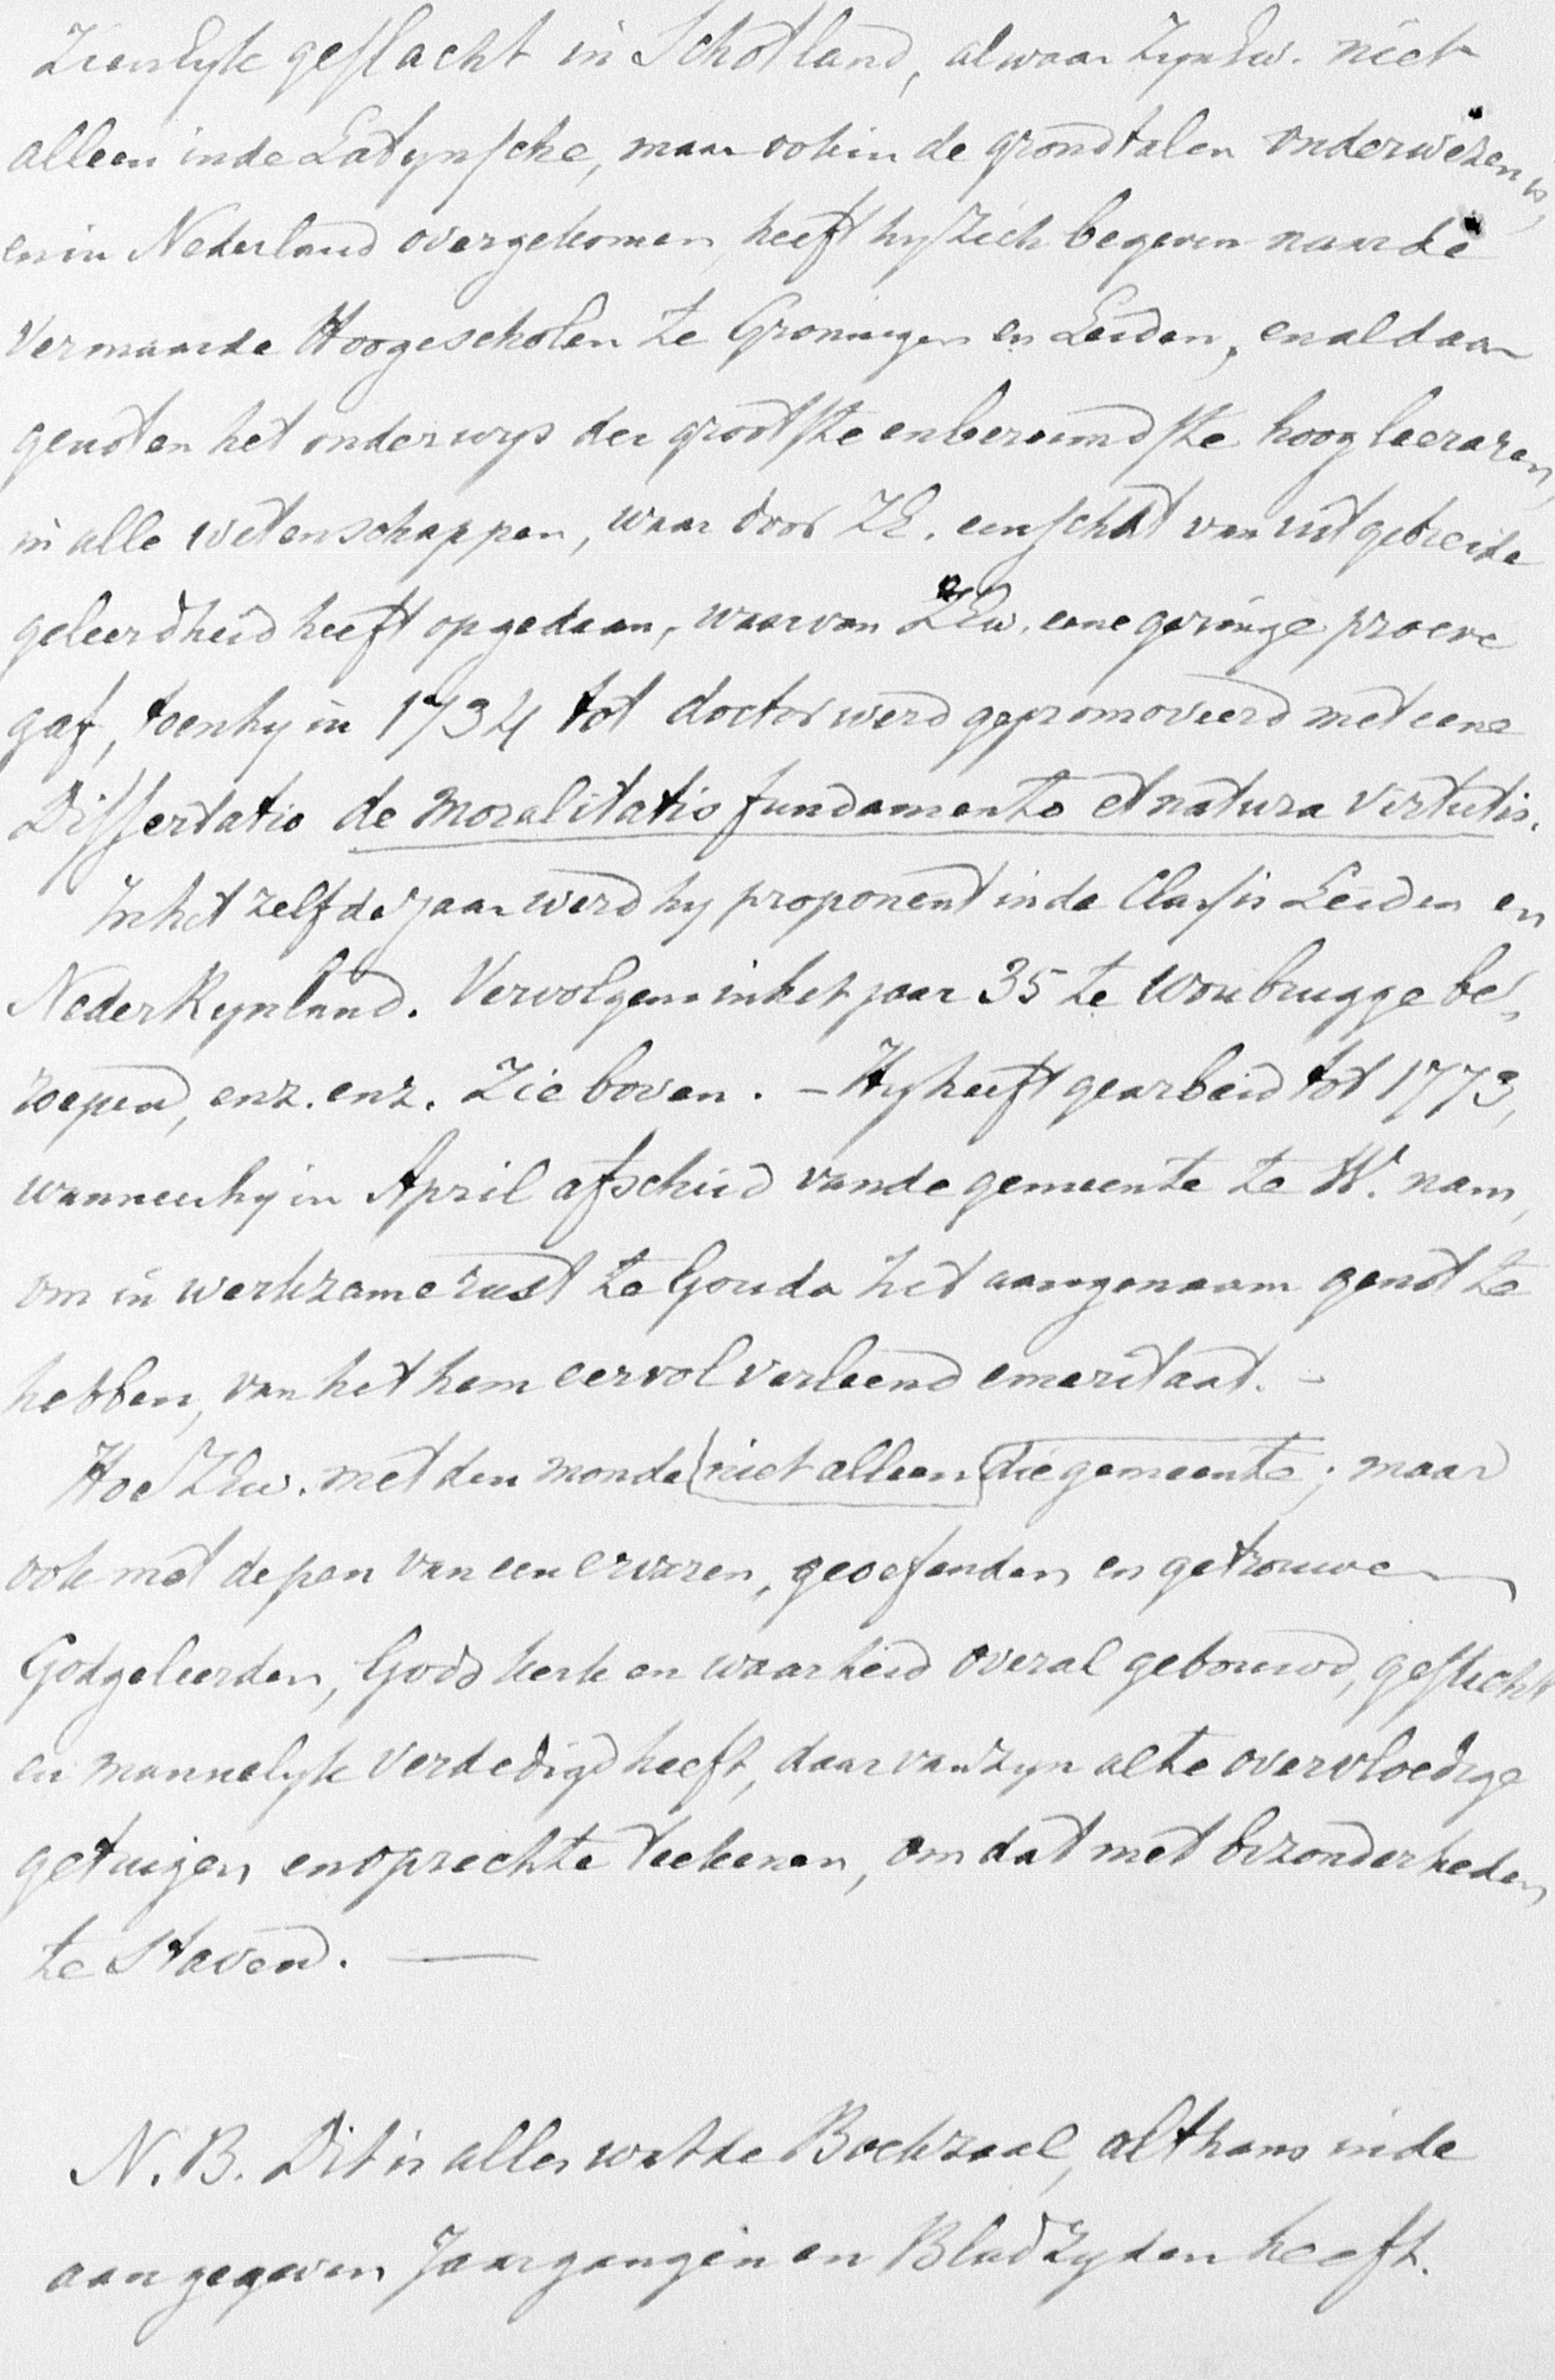 zienlyk geslacht in Schotland, alwaar ZynEw. niet
alleen in de Latynsche, maar ook in de grondtalen onderwezen is,
en in Nederland overgekomen heeft hy zich begeven naar de
vermaarde Hoogescholen te Groningen en Leiden, en aldaar
genoten het onderwys der grootste en beroemdste hoogleeraren,
in alle wetenschappen, waar door ZE. een schat van uitgebreide
geleerdheid heeft opgedaan, waarvan ZEw. eene geringe proeve
gaf, toen hy in 1734 tot doctor werd gepromoveerd met eene
Dissertatio de moralitatis fundamento et natura virtutis.
In het zelfde jaar werd hy proponent in de Classis Leiden en
Neder Rynland. Vervolgens in het jaar 35 te Woubrugge be-
roepen, enz. enz. Zie boven. - Hy heeft gearbeid tot 1773,
wanneer hy in April afscheid van de gemeente te W. nam,
om in werkzame rust te Gouda het aangenaam genot te
hebben, van het hem eervol verleend emeritaat. -
Hoe ZEw. met den monde (niet alleen) die gemeente; maar
ook met de pen van een ervaren, geoefenden en getrouwen
Godgeleerden, Gods kerk en waarheid overal gebouwd, gesticht
en mannelyk verdedigd heeft, daar van zyn al te overvloedige
getuigen en oprechte teekenen, om dat met bizonderheden
te staven. —
N.B. Dit is alles wat de Boekzaal, althans in de
aangegeven Jaargangen en Bladzyden heeft.